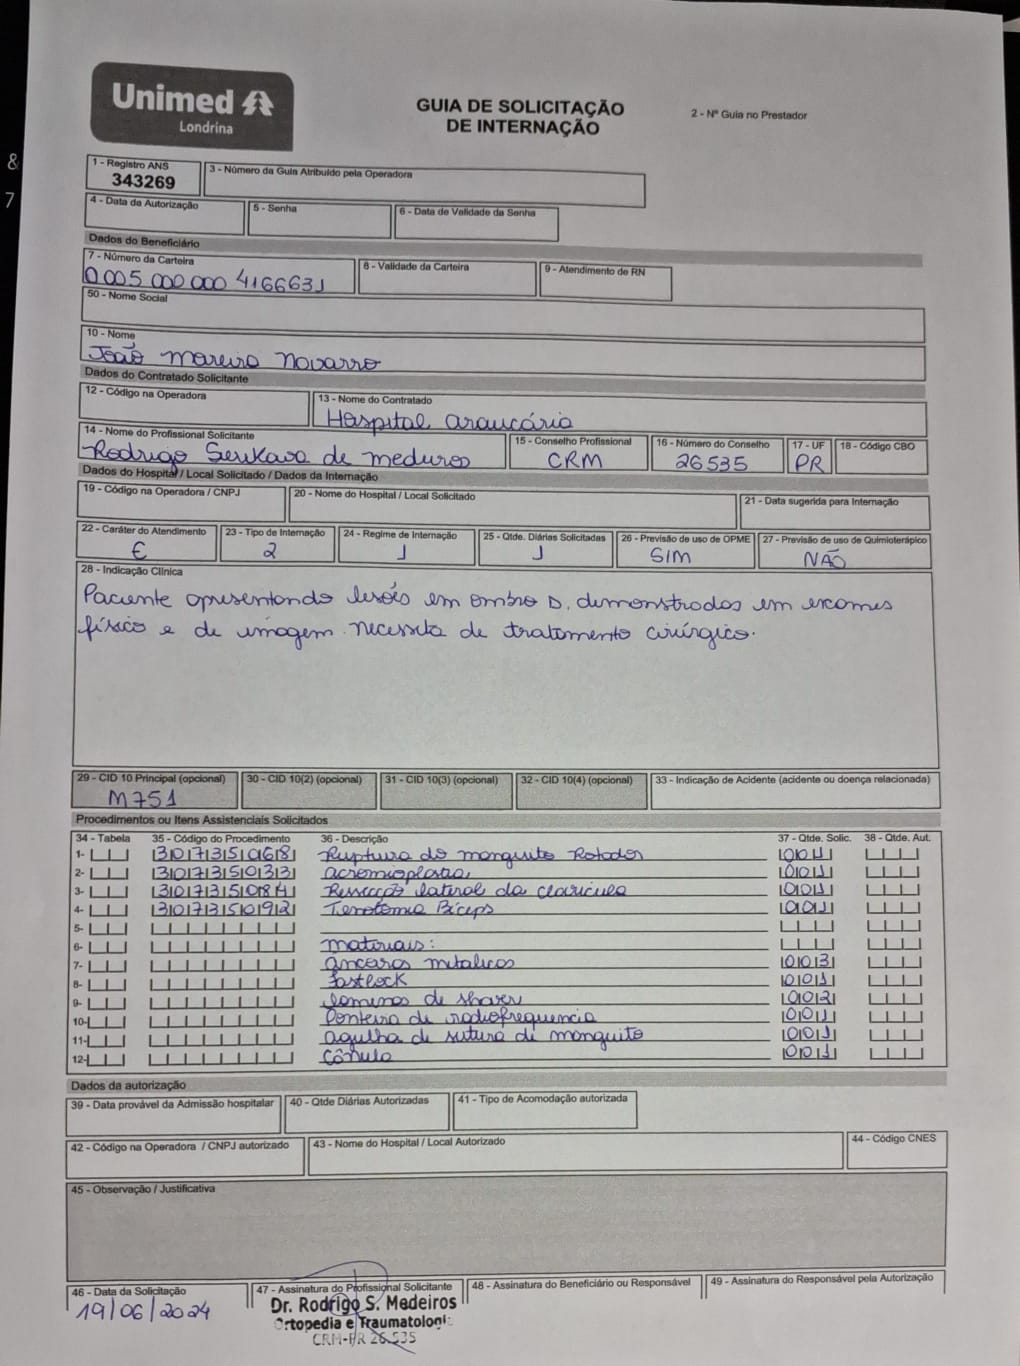 &
7
Unimed
Londrina
GUIA DE SOLICITAÇÃO
DE INTERNAÇÃO
2 - Nº Guia no Prestador
1 - Registro ANS
343269
3 - Número da Guia Atribuído pela Operadora
4 - Data da Autorização
5 - Senha
6 - Data de Validade da Senha
Dados do Beneficiário
7 - Número da Carteira
0 005 000 000 4166631
8 - Validade da Carteira
9 - Atendimento de RN
50 - Nome Social
10 - Nome
João Moreira Novarro
Dados do Contratado Solicitante
12 - Código na Operadora
13 - Nome do Contratado
Hospital araucária
14 - Nome do Profissional Solicitante
Rodrigo Serikava de medeiros
15 - Conselho Profissional
CRM
16 - Número do Conselho
26535
17 - UF
PR
18 - Código CBO
Dados do Hospital / Local Solicitado / Dados da Internação
19 - Código na Operadora / CNPJ
20 - Nome do Hospital / Local Solicitado
21 - Data sugerida para Internação
22 - Caráter do Atendimento
E
23 - Tipo de Internação
2
24 - Regime de Internação
1
25 - Qtde. Diárias Solicitadas
1
26 - Previsão de uso de OPME
SIM
27 - Previsão de uso de Quimioterápico
NÃO
28 - Indicação Clínica
Paciente apresentando lesões em ombro D, demonstrados em exames
físico e de imagem. necessita de tratamento cirúrgico.
29 - CID 10 Principal (opcional)
M751
30 - CID 10(2) (opcional)
31 - CID 10(3) (opcional)
32 - CID 10(4) (opcional)
33 - Indicação de Acidente (acidente ou doença relacionada)
Procedimentos ou Itens Assistenciais Solicitados
34 - Tabela 35 - Código do Procedimento 36 - Descrição 37 - Qtde. Solic. 38 - Qtde. Aut.
1- 30735068 Ruptura do manguito Rotador 001
2- 30735033 acromioplastia 001
3- 30735084 Ressecção lateral da clavícula 001
4- 30735092 Tenotomia Bíceps 001
5-
6- materiais:
7- âncoras metálicas 003
8- Fastlock 001
9- lâminas de shaver 002
10- Ponteira de radiofrequencia 001
11- agulha de sutura de manguito 001
12- Cânula 001
Dados da autorização
39 - Data provável da Admissão hospitalar
40 - Qtde Diárias Autorizadas
41 - Tipo de Acomodação autorizada
42 - Código na Operadora / CNPJ autorizado
43 - Nome do Hospital / Local Autorizado
44 - Código CNES
45 - Observação / Justificativa
46 - Data da Solicitação
19/06/2024
47 - Assinatura do Profissional Solicitante
Dr. Rodrigo S. Medeiros
Ortopedia e Traumatologi
CRM-PR 26.535
48 - Assinatura do Beneficiário ou Responsável
49 - Assinatura do Responsável pela Autorização